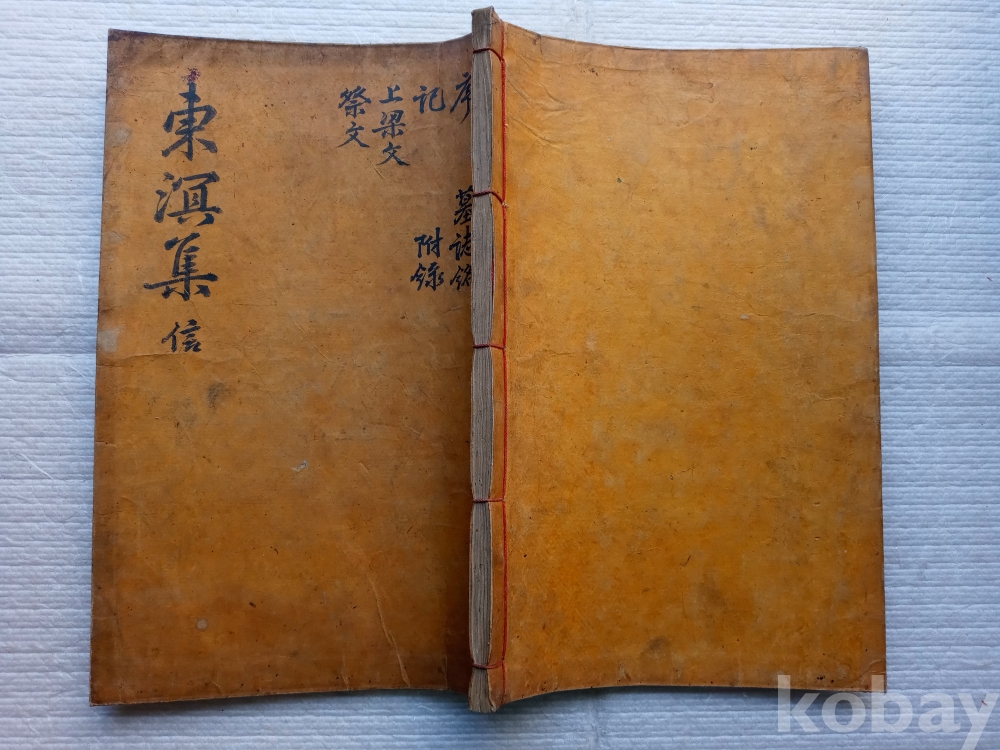 東溟集 信
序 墓誌銘
記 附錄
上梁文
祭文
kobay